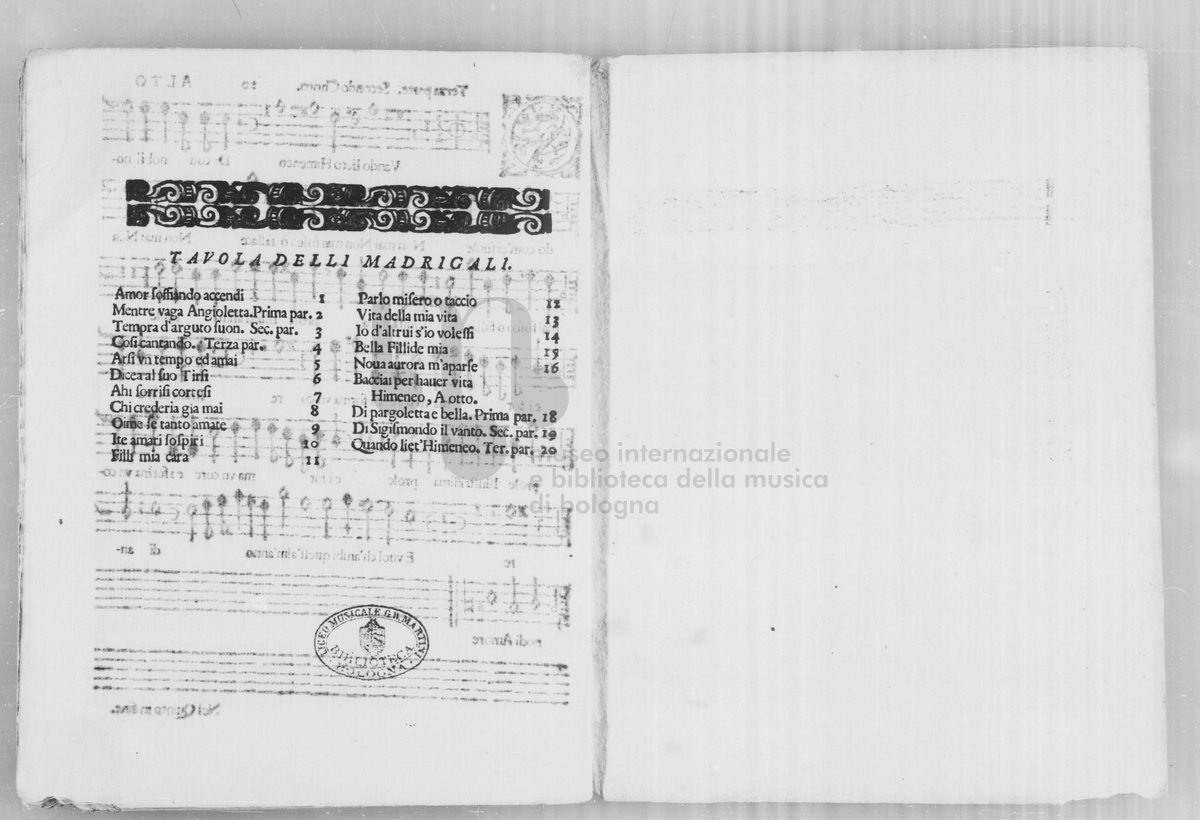 TAVOLA DELLI MADRIGALI.
Amor soffiando accendi 1
Mentre vaga Angioletta. Prima par. 2
Tempra d'arguto suon. Sec. par. 3
Cosi cantando. Terza par. 4
Arsi vn tempo ed amai 5
Dicea al suo Tirsi 6
Ahi sorrisi cortesi 7
Chi crederia gia mai 8
Oime se tanto amate 9
Ite amari sospiri 10
Filli mia cara 11
Parlo misero o taccio 12
Vita della mia vita 13
Io d'altrui s'io volessi 14
Bella Fillide mia 15
Noua aurora m'aparse 16
Bacciai per hauer vita
Himeneo, A otto.
Di pargoletta e bella. Prima par. 18
Di Sigismondo il vanto. Sec. par. 19
Quando liet'Himeneo. Ter. par. 20
museo internazionale
e biblioteca della musica
di bologna
LICEO MUSICALE G.B. MARTINI
BIBLIOTECA
BOLOGNA